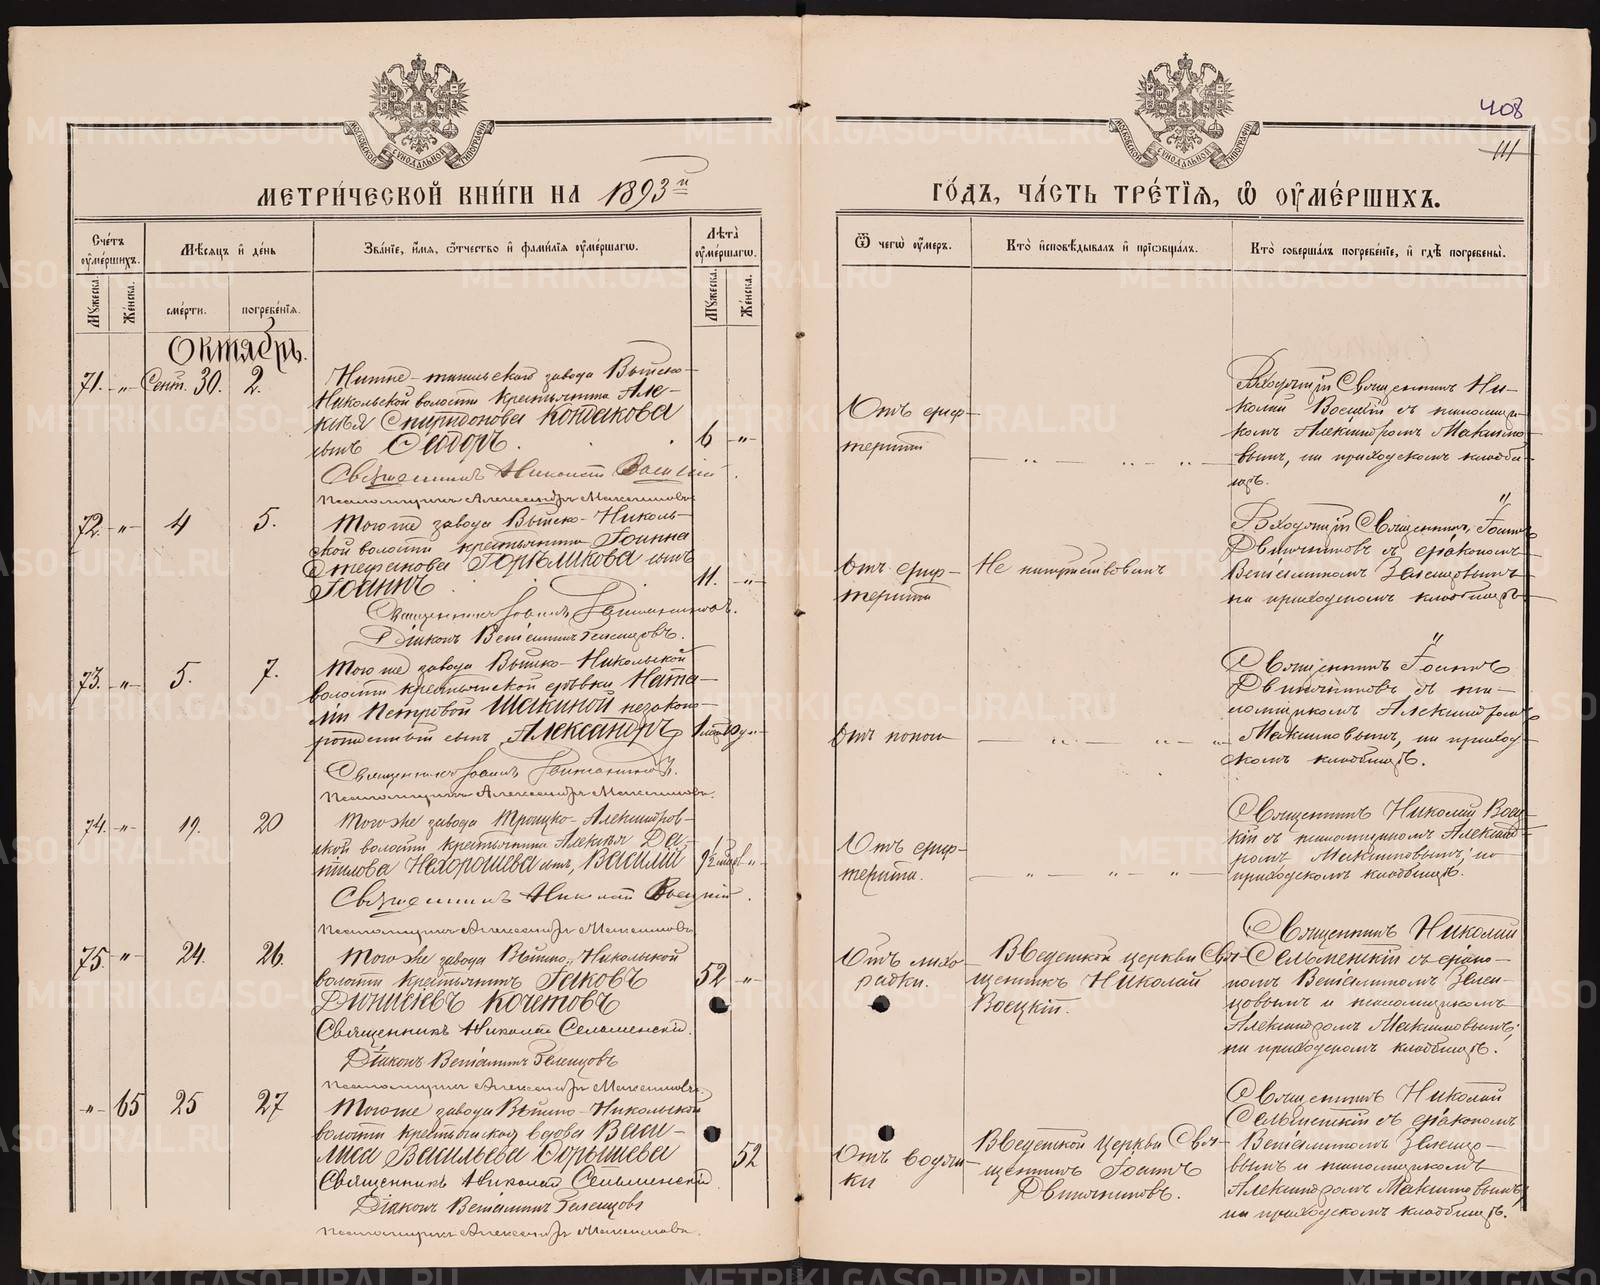 408
111
МОСКОВСКОЙ СѴНОДАЛЬНОЙ ТИПОГРАФІИ
МОСКОВСКОЙ СѴНОДАЛЬНОЙ ТИПОГРАФІИ
МЕТРИ́ЧЕСКОЙ КНИ́ГИ НА 1893й
ГО́ДЪ, ЧА́СТЬ ТРЕ́ТЇѦ, Ѡ ОУ҆МЕ́РШИХЪ.
Сче́тъ оу҆ме́ршихъ.
Мꙋ́жеска.
Же́нска.
Мѣ́сѧцъ и҆ де́нь
сме́рти.
погребе́нїѧ.
Зва́нїе, и҆́мѧ, ѻ҆́тчество и҆ фами́лїѧ оу҆ме́ршагѡ.
Лѣ́та оу҆ме́ршагѡ.
Мꙋ́жеска.
Же́нска.
Ѿ чегѡ̀ оу҆́меръ.
Кто̀ и҆сповѣ́дывалъ и҆ прїѡбща́лъ.
Кто̀ соверша́лъ погребе́нїе, и҆ гдѣ̀ погребены̀.
Октябрь.
71. -„- Сент. 30. 2.
Нижне-тагильскаго завода Выйско-
Никольской волости крестьянина Але-
ксѣя Спиридонова Кондакова
сынъ Ѳедоръ. 6 -„-
Священникъ Николай Воецкій.
Псаломщикъ Александръ Максимовъ.
Отъ диф-
терита
Священникъ Ни-
колай Воецкій съ псаломщи-
комъ Александромъ Максимо-
вымъ, на приходскомъ кладби-
щѣ.
72. -„- 4 5.
Того же завода Выйско-Николь-
ской волости крестьянина Іоанна
Стефанова Горѣликова сынъ
Іоаннъ. 11. -„-
Священникъ Іоаннъ
Діаконъ Веніаминъ
Отъ диф-
терита
Не напутствованъ
Священникъ Іоаннъ
съ діакономъ
Веніаминомъ
на приходскомъ кладбищѣ
73. -„- 5. 7.
Того же завода Выйско-Никольской
волости крестьянской дѣвки Ната-
ліи Петровой незаконо-
рожденный сынъ Александръ
Священникъ Іоаннъ
Псаломщикъ Александръ Максимовъ.
Отъ поноса
Священникъ Іоаннъ
съ пса-
ломщикомъ Александромъ
Максимовымъ, на приход-
скомъ кладбищѣ.
74. -„- 19. 20
Того же завода Троицко-Александров-
ской волости крестьянина Алексѣя Да-
нилова Нехорошева сынъ, Василій
Священникъ Николай Воецкій.
Псаломщикъ Александръ Максимовъ
Отъ диф-
терита.
Священникъ Николай Воец-
кій съ псаломщикомъ Александ-
ромъ Максимовымъ, на
приходскомъ кладбищѣ.
75. -„- 24. 26.
Того же завода Выйско-Никольской
волости крестьянинъ Іаковъ
Діонисіевъ Кочетовъ 52 -„-
Священникъ Николай
Діаконъ Веніаминъ
Псаломщикъ Александръ Максимовъ.
Отъ лихо-
радки.
Введенской церкви Свя-
щенникъ Николай
Воецкій.
Священникъ Николай
съ діако-
номъ Веніаминомъ
и псаломщикомъ
Александромъ Максимовымъ,
на приходскомъ кладбищѣ.
-„- 65 25 27
Того же завода Выйско-Никольской
волости крестьянская вдова Васи-
лиса Васильева 52
Священникъ Николай
Діаконъ Веніаминъ
Псаломщикъ Александръ Максимовъ.
Отъ водян-
ки
Введенской Церкви Свя-
щенникъ Іоаннъ
Священникъ Николай
съ діакономъ
Веніаминомъ
и псаломщикомъ
Александромъ Максимовымъ,
на приходскомъ кладбищѣ.
METRIKI.GASO-URAL.RU